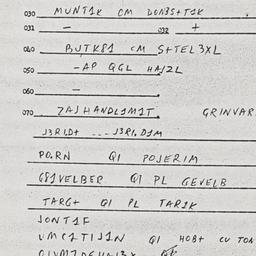 030 MUNTIK CM DON3S+T1K
031 — 032 +
040 BUTK81 CM S+TEL3XL
050 -AP QGL HAJ2L
060 —
070 ZAJHANDL1M1T. GRINVAR
J3RI.D+ --- J3RI.D1M
PO.RN QI POJERIM
G81VELBER QI PL GEVELB
TARG+ QI PL TAR1K
JONT1F
QI HOB+ CU TON